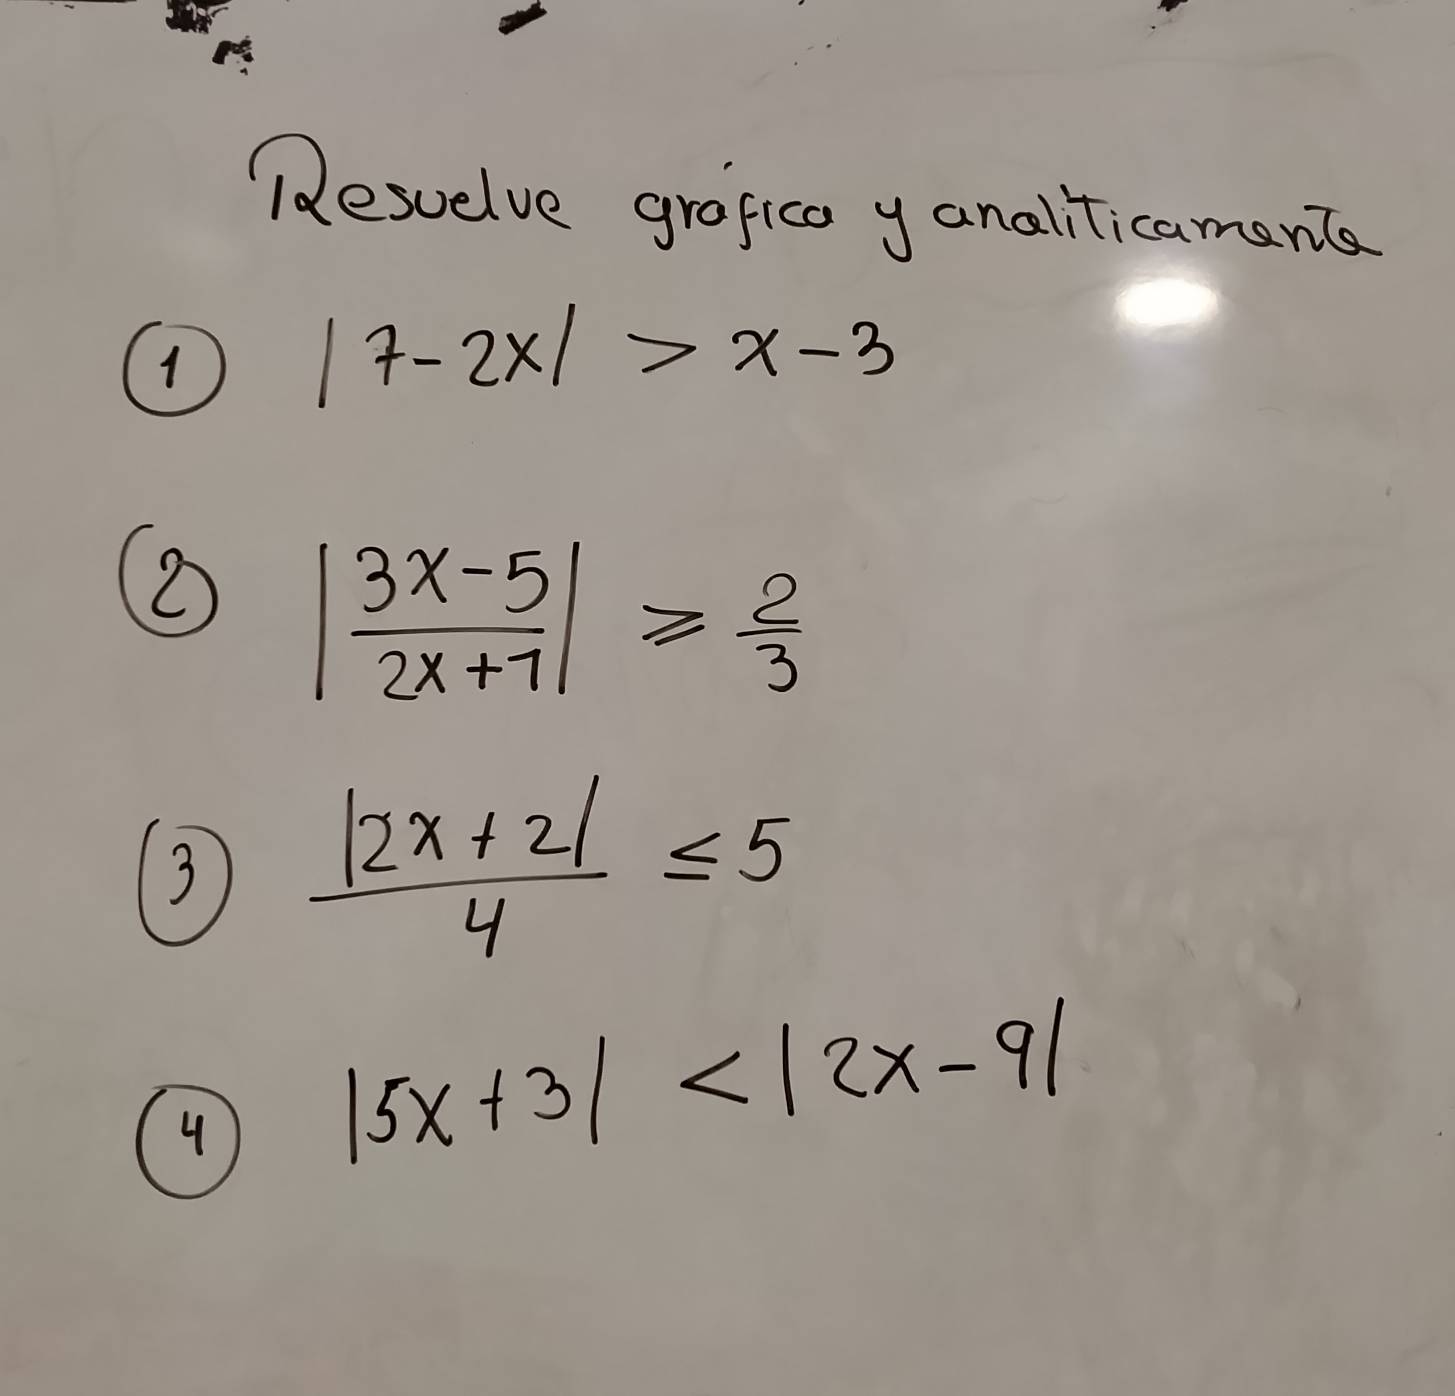 Resuelve gráfica y analíticamente
① |7-2x| > x-3
② |(3x-5)/(2x+1)| ≥ 2/3
③ |2x+2|/4 ≤ 5
④ |5x+3| < |2x-9|